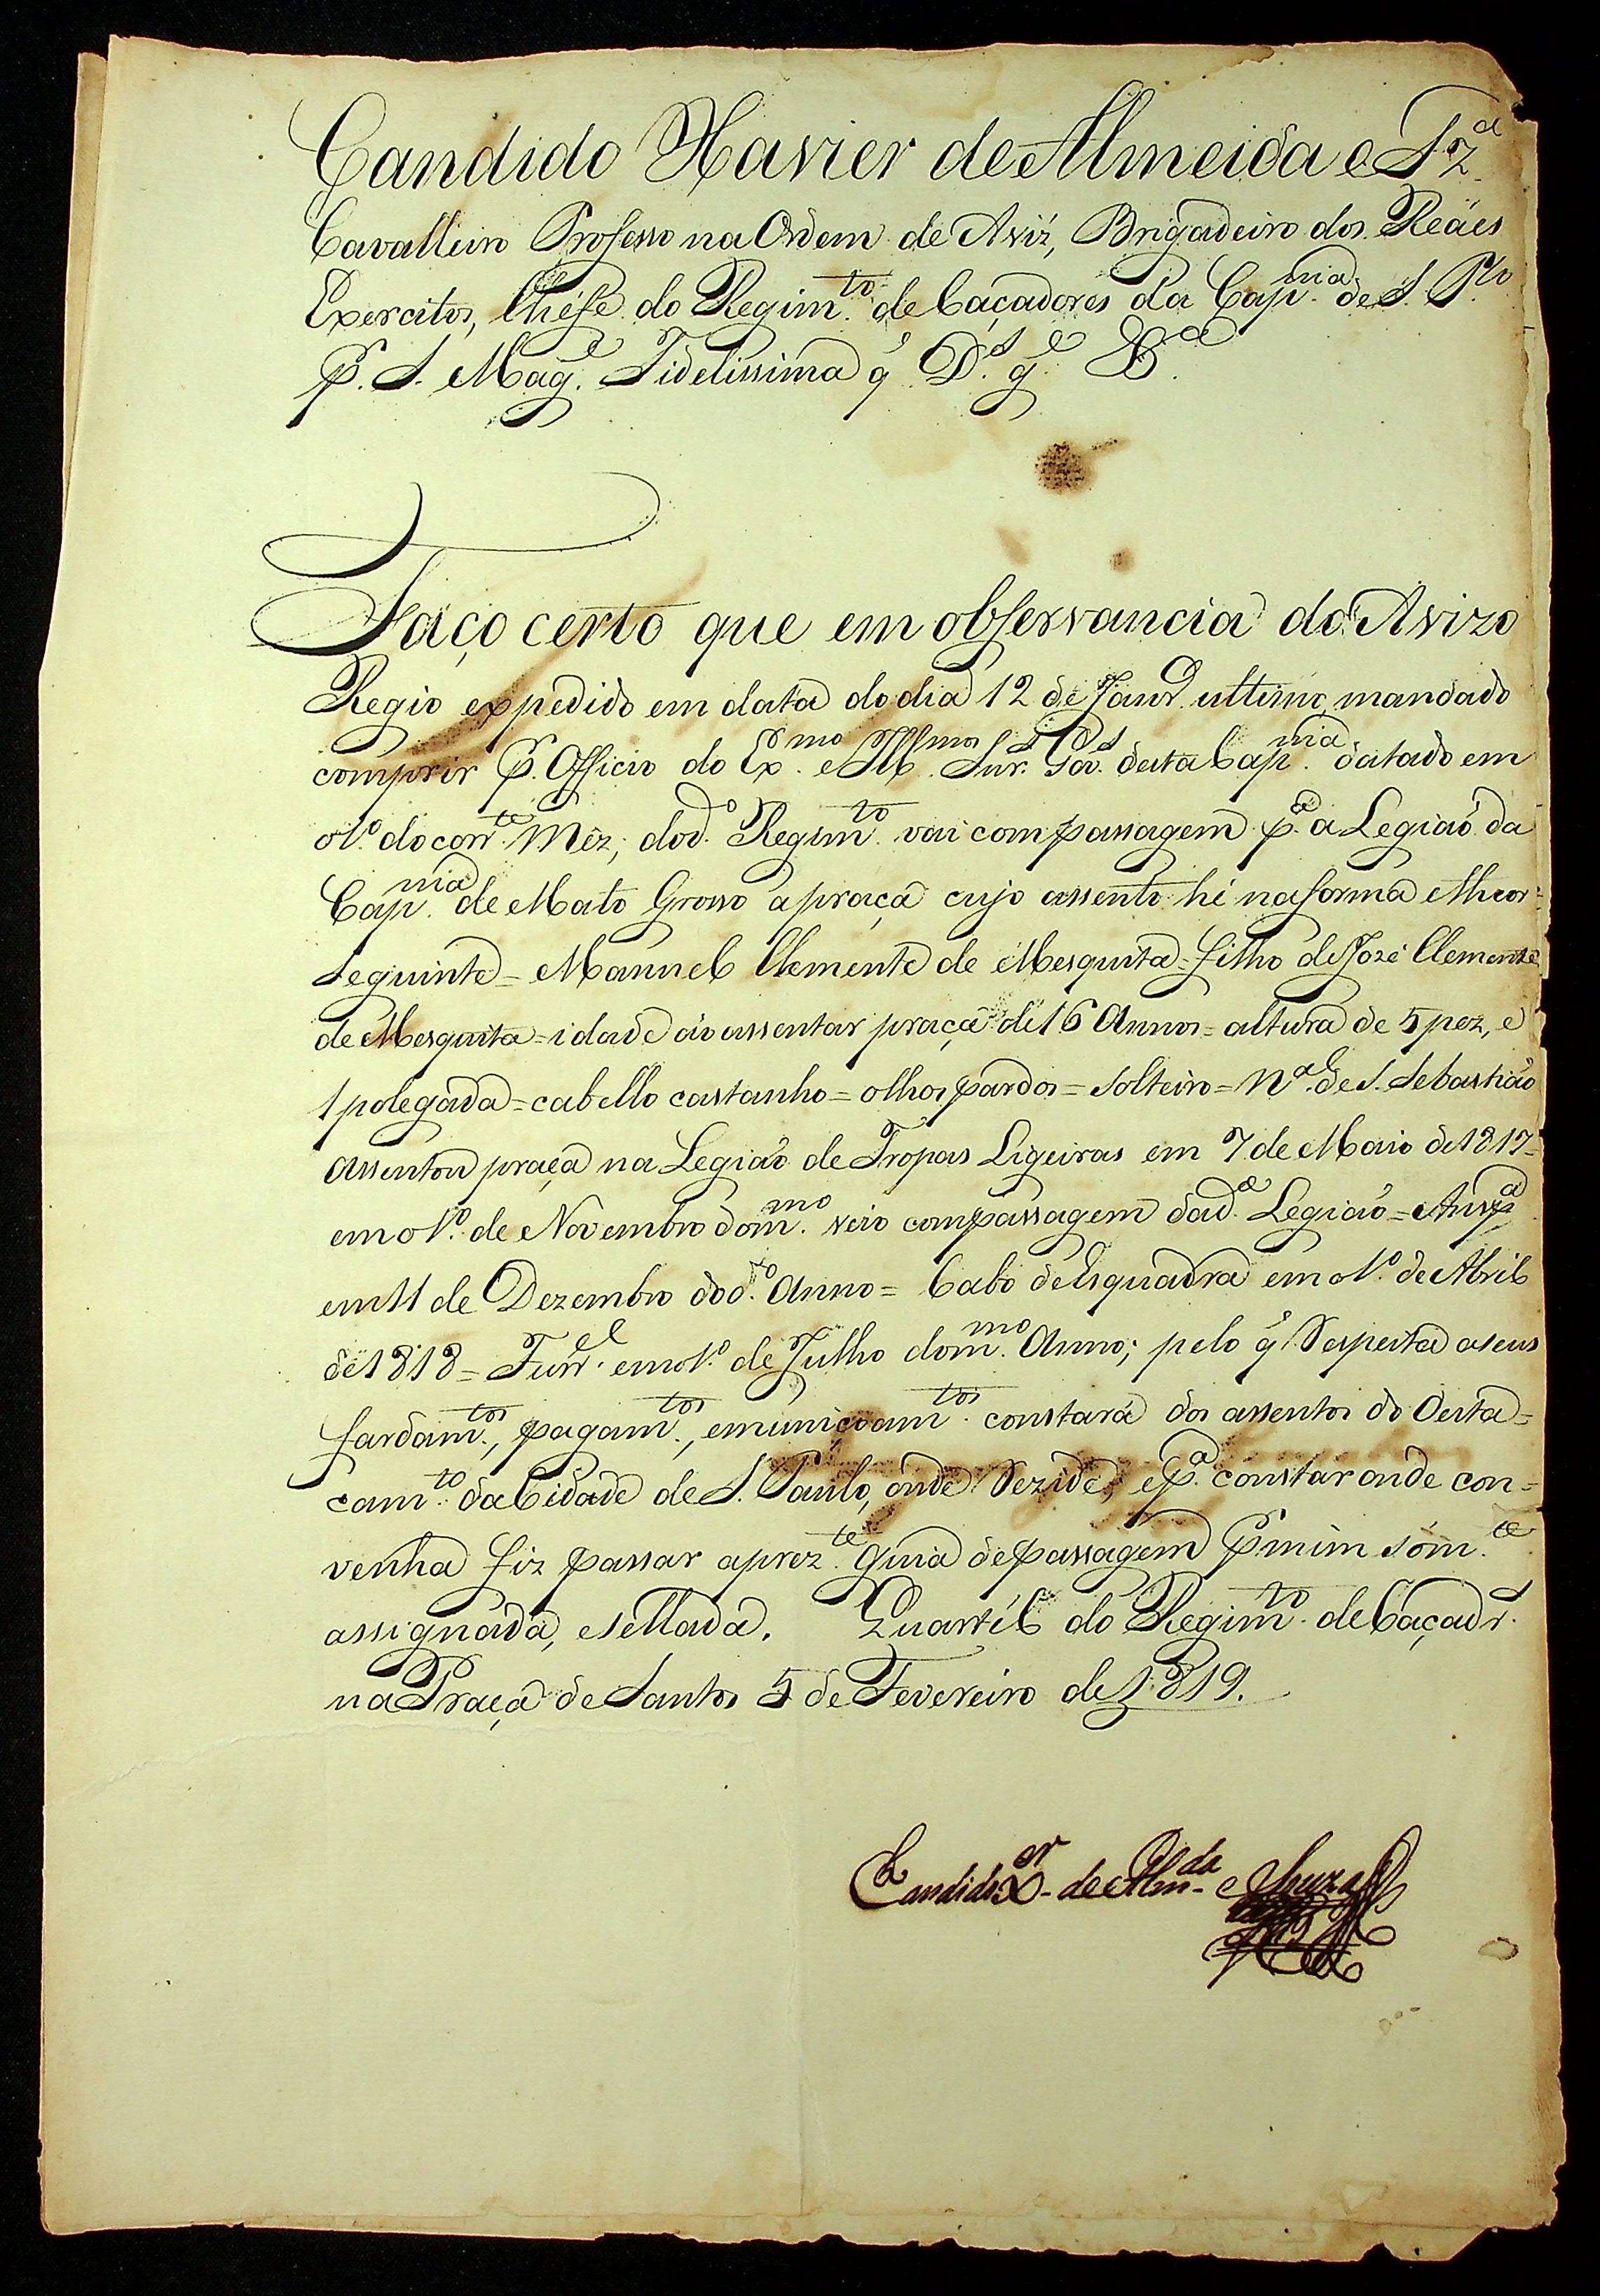 Candido Xavier de Almeida e Sz.ª
Cavalleiro Professo na Ordem de Aviz, Brigadeiro dos Reáes
Exercitos, Chéfe do Regim.to de Caçadores da Cap.nia de S. P.lo
P. S. Mag.e Fidelissima q̃ D.s g.e &.ª
Faço certo que em observancia do Avizo
Regio expedido em data do dia 12 de Janr.o ultimo, mandado
comprir P. Officio do Ex.mo e Ill.mos Snr.s Gov.s desta Cap.nia datado em
o 1.º do corr.te Mêz; do d.º Regim.to vai com passagem p.ª a Legiaõ da
Cap.nia de Mato Grosso a praça cujo assento hé na forma e theor =
seguinte = Manuel Clemente de Mesquita = filho de Jozé Clemente
de Mesquita = idade ao assentar praça de 16 Annos = altura de 5 pez, e
1 polegada = cabello castanho = olhos pardos = solteiro = N.al de S. Sebastiaõ
Assentou praça na Legiaõ de Tropas Ligeiras em 7 de Maio de 1817 =
em o 1.º de Novembro do m.mo veio com passagem da d.ª Legiaõ = Ansp.ª
em 11 de Dezembro do d.to Anno = Cabo de Esquadra em o 1.º de Abril
de 1818 = Furr.el em o 1.º de Julho do m.mo Anno; pelo q̃ Respeita a seus
fardam.tos, pagam.tos, e municioam.tos constará dos assentos do Desta =
cam.to da Cidade de S. Paulo, onde Rezide, e p.ª constar onde con =
venha fiz passar a prez.te Guia de passagem P mim sóm.te
assignada, e sellada. Quartél do Regim.to de Caçadr.s
na Praça de Santos 5 de Fevereiro de 1819.
Candido X.er de Alm.da e Souza